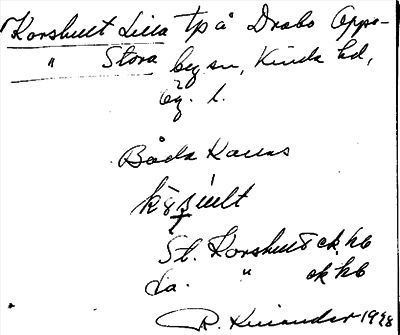 Korshult Lilla tp å Drabo Oppe-
" Stora by sn, Kinda hd,
Ög. l.
Båda kallas
St. Korshult ek hb
La. " ek hb
R. Kinander 1928